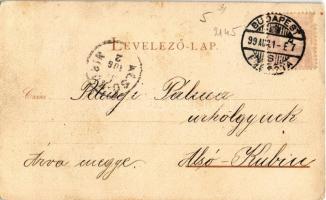 5
2145
LEVELEZŐ-LAP.
BUDAPEST
99 AUG 21 - E 7
Pálma
úrhölgynek
Árva megye.
Alsó-Kubin